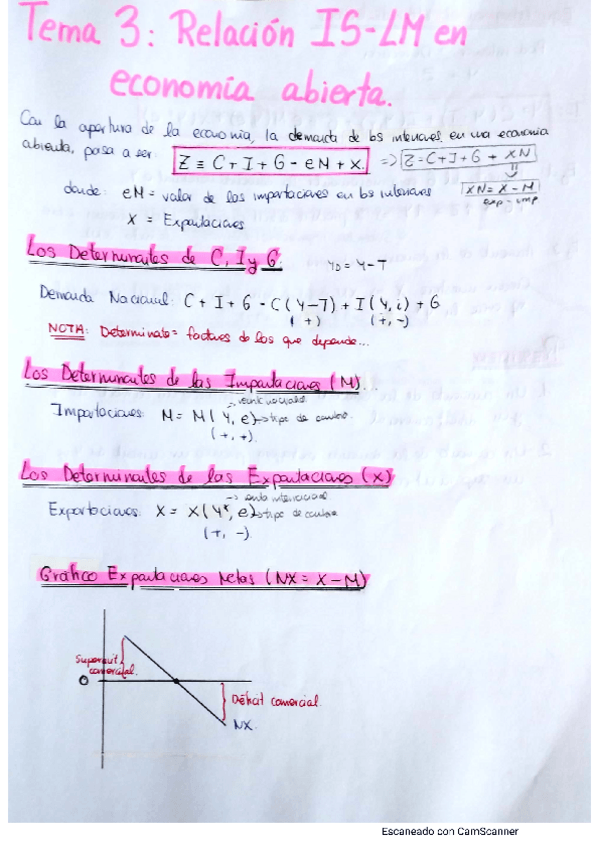 Tema 3: Relación IS-LM en
economía abierta.
Con la apertura de la economía, la demanda de bs interiores en una economía
abierta, pasa a ser: Z ≡ C + I + G - eM + X. => Z = C + I + G + XN
donde: eM = valor de las importaciones en bs interiores XN = X - M
exp - imp
X = Exportaciones
Los Determinantes de C, I y G: YD = Y - T
Demanda Nacional: C + I + G = C (Y-T) + I (Y, i) + G
(+) (+, -)
NOTA: Determinate = factores de los que depende...
Los Determinantes de las Importaciones (M)...
-> renta nacional
Importaciones: M = M (Y, e) -> tipo de cambio
(+, +).
Los Determinantes de las Exportaciones (X)
-> renta internacional
Exportaciones: X = X (Y*, e) -> tipo de cambio
(+, -)
Gráfico Exportaciones Netas (NX = X - M)
Superavit
comercial.
O
Déficit comercial.
NX.
Escaneado con CamScanner